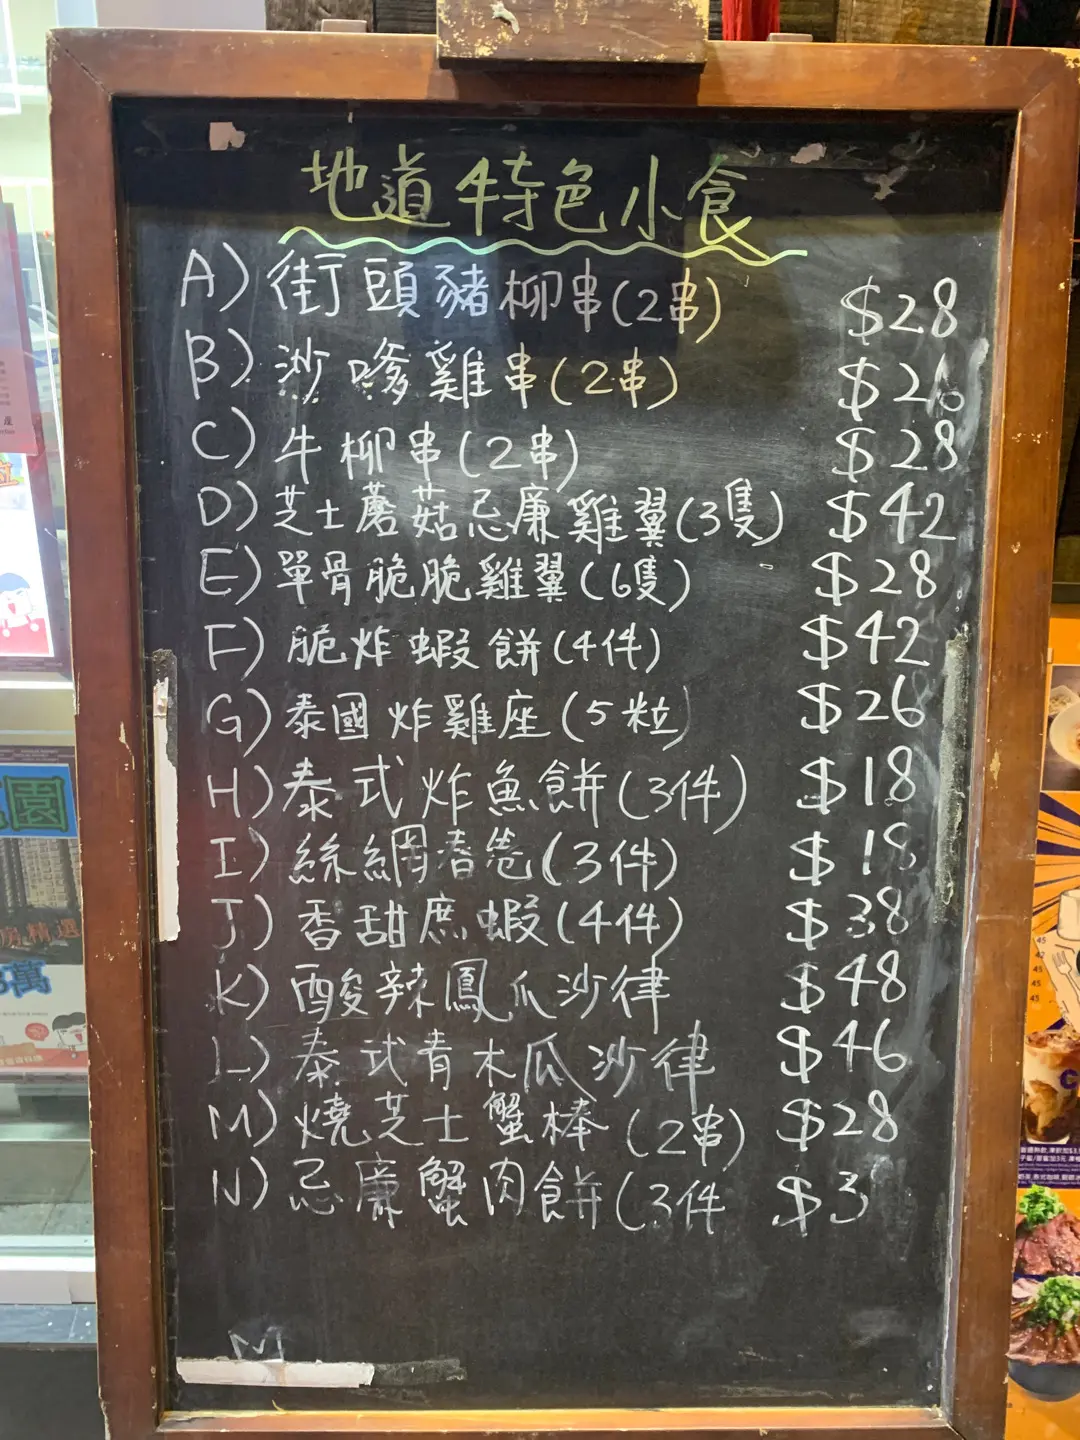 地道特色小食
A) 街頭豬柳串(2串) $28
B) 沙嗲雞串(2串) $26
C) 牛柳串(2串) $28
D) 芝士蘑菇忌廉雞翼(3隻) $42
E) 單骨脆脆雞翼(6隻) $28
F) 脆炸蝦餅(4件) $42
G) 泰國炸雞座(5粒) $26
H) 泰式炸魚餅(3件) $18
I) 絲網春卷(3件) $18
J) 香甜蔗蝦(4件) $38
K) 酸辣鳳爪沙律 $48
L) 泰式青木瓜沙律 $46
M) 燒芝士蟹棒(2串) $28
N) 忌廉蟹肉餅(3件 $3
M
園
房精選
萬